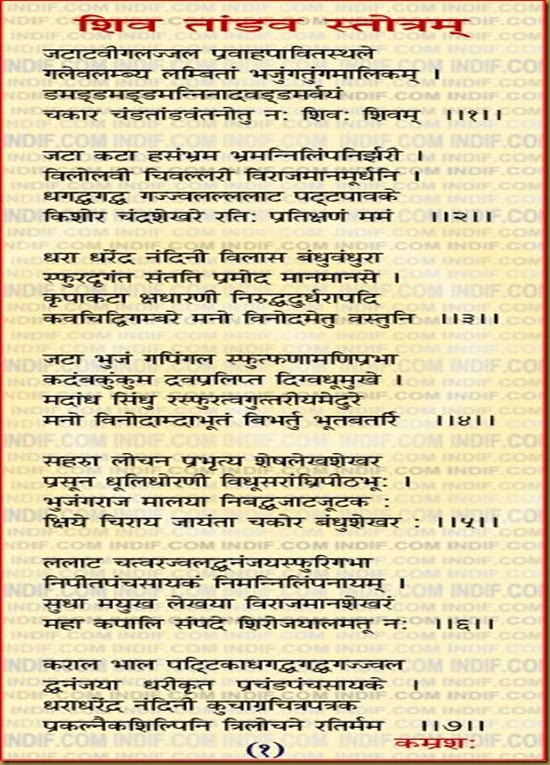 शिव तांडव स्तोत्रम्
जटाटवीगलज्जल प्रवाहपावितस्थले
गलेवलम्ब्य लम्बितां भजुंगतुंगमालिकम् ।
डमड्डमड्डमन्निनादवड्डमर्वयं
चकार चंडतांडवंतनोतु नः शिवः शिवम् ।।१।।
जटा कटा हसंभ्रम भ्रमन्निलिंपनिर्झरी ।
विलोलवी चिवल्लरी विराजमानमूर्धनि ।
धगद्धगद्ध गज्ज्वलल्ललाट पट्टपावके
किशोर चंद्रशेखरे रतिः प्रतिक्षणं ममं ।।२।।
धरा धरेंद्र नंदिनी विलास बंधुवंधुरा
स्फुरदृगंत संतति प्रमोद मानमानसे ।
कृपाकटा क्षधारणी निरुद्धदुर्धरापदि
कवचिद्विगम्बरे मनो विनोदमेतु वस्तुनि ।।३।।
जटा भुजं गपिंगल स्फुत्फणामणिप्रभा
कदंबकुंकुम द्रवप्रलिप्त दिग्वधूमुखे ।
मदांध सिंधु रस्फुरत्वगुत्तरीयमेदुरे
मनो विनोदाम्दाभूतं बिभर्तु भूतवतरि ।।४।।
सहस्त्र लोचन प्रभृत्य शेषलेखशेखर
प्रसून धूलिधोरणी विधूसरांघ्रिपीठभूः ।
भुजंगराज मालया निबद्धजाटजूटक :
क्षिये चिराय जायंता चकोर बंधुशेखर : ।।५।।
ललाट चत्वरज्वलद्धनंजयस्फुरिगभा
निपीतपंचसायकं निमन्निलिंपनायम् ।
सुधा मयुख लेखया विराजमानशेखरं
महा कपालि संपदे शिरोजयालमतू नः ।।६।।
कराल भाल पट्टिकाधगद्धगद्धगज्ज्वल
द्धनंजया धरीकृत प्रचंडपंचसायके ।
धराधरेंद्र नंदिनी कुचाग्रचित्रपत्रक
प्रकल्नैकशिल्पिनि त्रिलोचने रतिर्मम ।।७।।
(१) कम्रशः